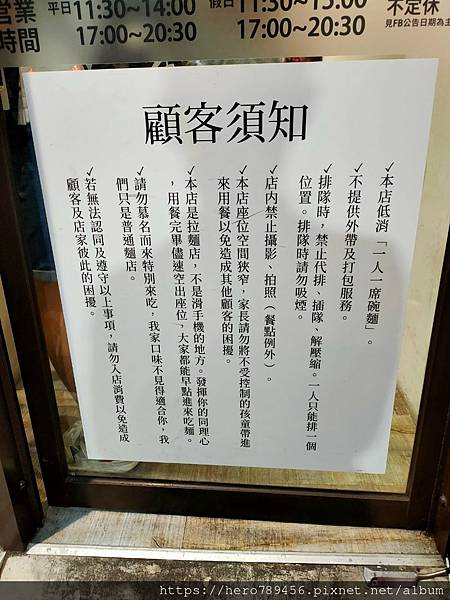 營業
時間
平日11:30~14:00
17:00~20:30
假日11:30~15:00
17:00~20:30
不定休
見FB公告日期為主
顧客須知
✓本店低消「一人一席碗麵」。
✓不提供外帶及打包服務。
✓排隊時，禁止代排、插隊、解壓縮。一人只能排一個
位置。排隊時請勿吸煙。
✓店內禁止攝影、拍照（餐點例外）。
✓本店座位空間狹窄，家長請勿將不受控制的孩童帶進
來用餐以免造成其他顧客的困擾。
✓本店是拉麵店，不是滑手機的地方。發揮你的同理心
，用餐完畢儘速空出座位，大家都能早點進來吃麵。
✓請勿慕名而來特別來吃，我家口味不見得適合你，我
們只是普通麵店。
✓若無法認同及遵守以上事項，請勿入店消費以免造成
顧客及店家彼此的困擾。
https://hero789456.pixnet.net/album